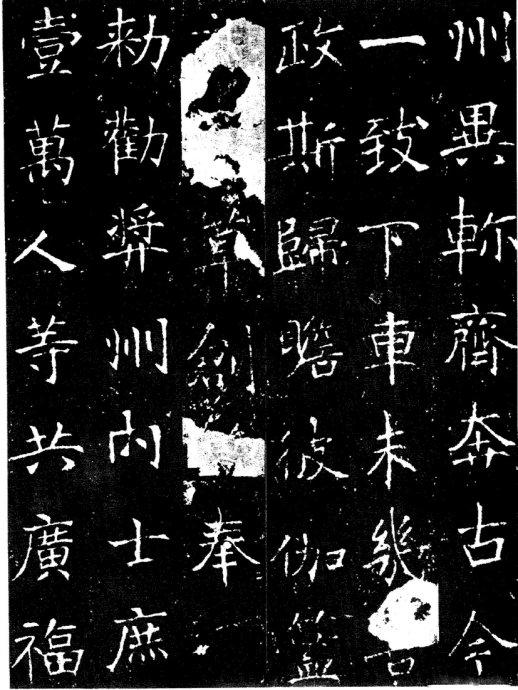 州異軫齊奔古今
一致下車未幾
政斯歸瞻彼伽藍
草創奉
勑勸奬州內士庶
壹萬人等共廣福